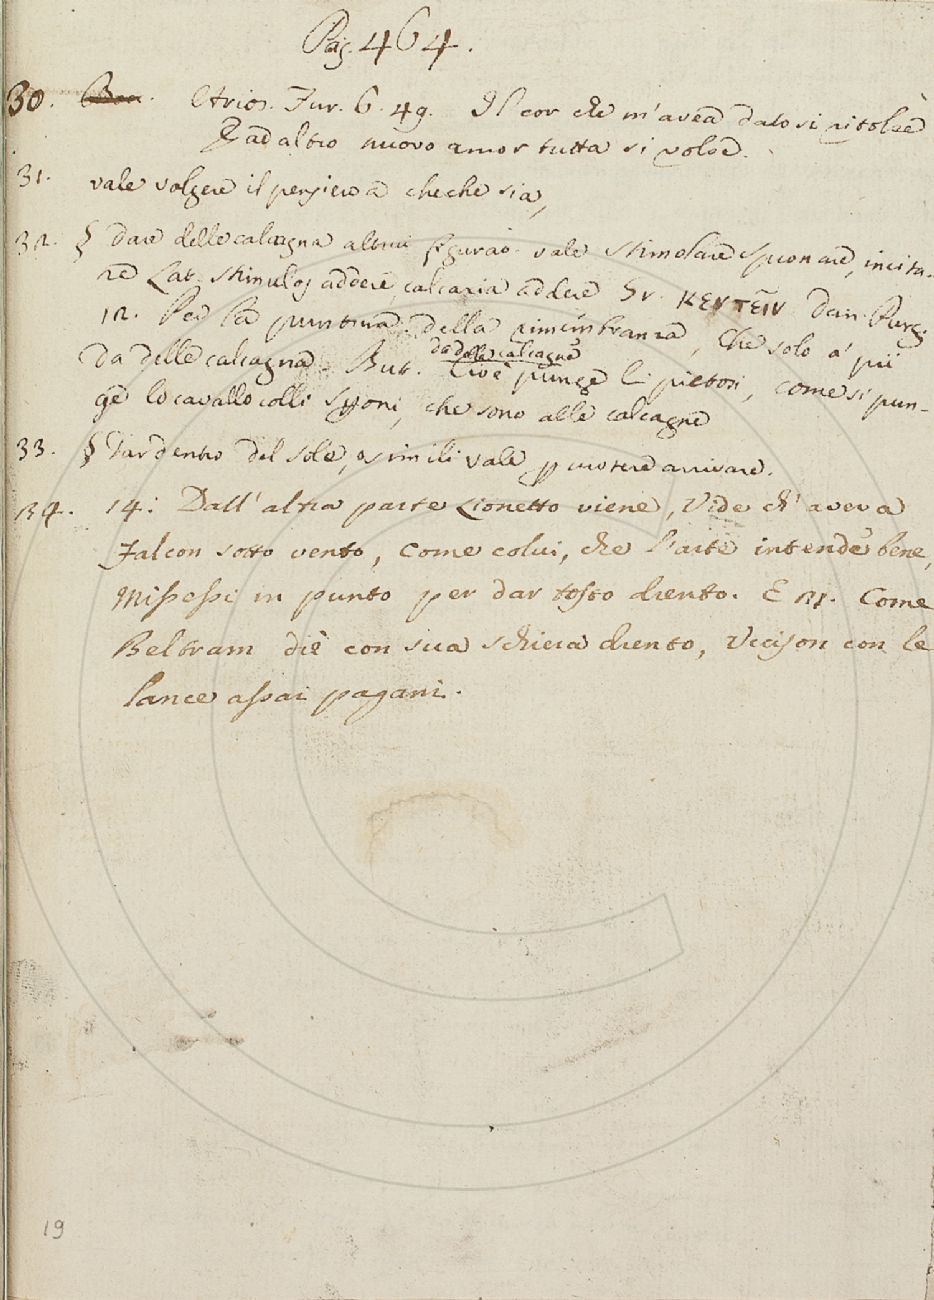 Pag. 464.
30. Boc. Arios. Fur. 6. 49. Il cor che m'avea dato si ritolse
E ad altro nuovo amor tutta si volse.
31. vale volgere il pensiero a checche sia,
32. § Dare delle calcagna altrui figurao. vale stimolare spronare, incita-
re Lat. stimulos addere, calcaria addere Gr. κεντεῖν Dan. Purg.
12. Per la puntura della rimembranza, Che solo a' pii
da delle calcagna. But. da delle calcagne Cioè punge li pietosi, come si pun-
ge lo cavallo colli sproni, che sono alle calcagne
33. § Dar dentro del sole, o simili vale percuotere arrivare.
34. 14: Dall' altra parte Lionetto viene, Vide ch' aveva
Falcon sotto vento, Come colui, che l'arte intende bene,
Missessi in punto per dar tosto drento. E 21. Come
Beltram diè con sua schiera drento, Uccison con le
lance assai pagani.
19